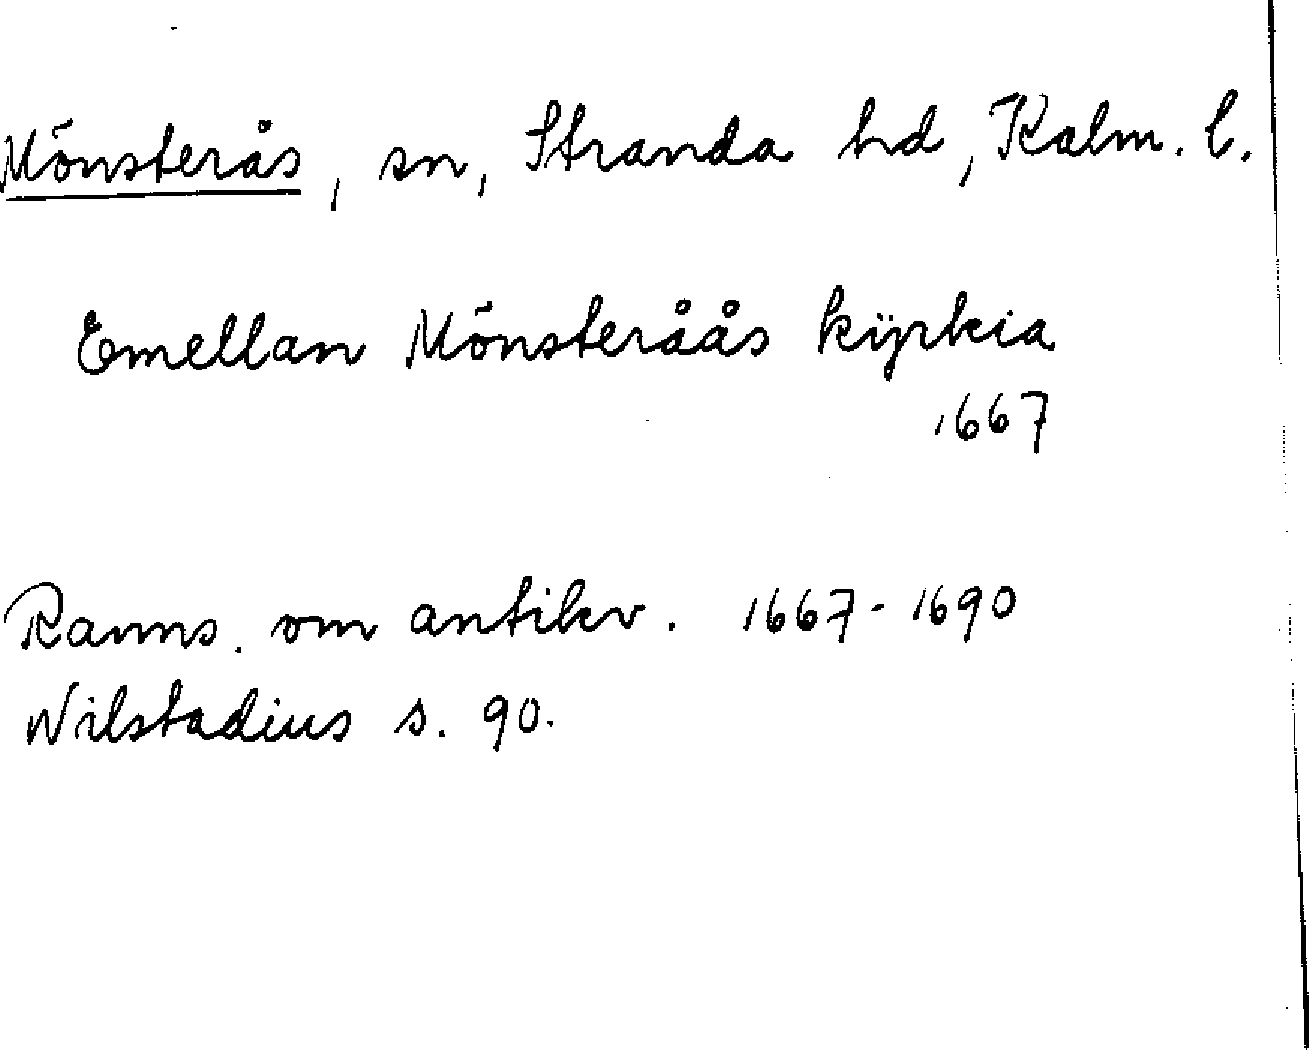 Mönsterås, sn, Stranda hd, Kalm. l.
Emellan Mönsteråås kÿrkia
1667
Ranns. om antikv. 1667-1690
Nilstadius s. 90.